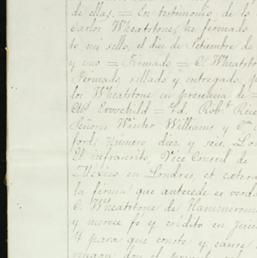 de ellas. = En testimonio de lo
Carlos Wheatstone, he firmado
to mi sello, el dia de Setiembre de
y uno = Firmado = C. Wheatsto
Firmado, sellado y entregado, p
los Wheatstone en presencia de =
Robt
Señores Winter Williams y Co
ford, Número diez y seis, Lon
El infrascrito, Vice Consul de
Mexico en Londres, et
la firma que antecede es verda
C. Wheatstone de Hammersm
y merece fe y crédito en juic
y para que conste y